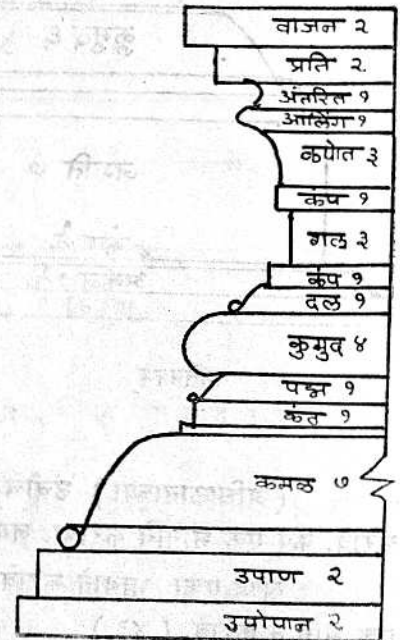 वाजन २
प्रति २
अंतरित १
आलिंग १
कपोत ३
कंप १
गल ३
कंप १
दल १
कुमुद ४
पद्म १
कंत १
कमळ ७
उपाण २
उपोपान २